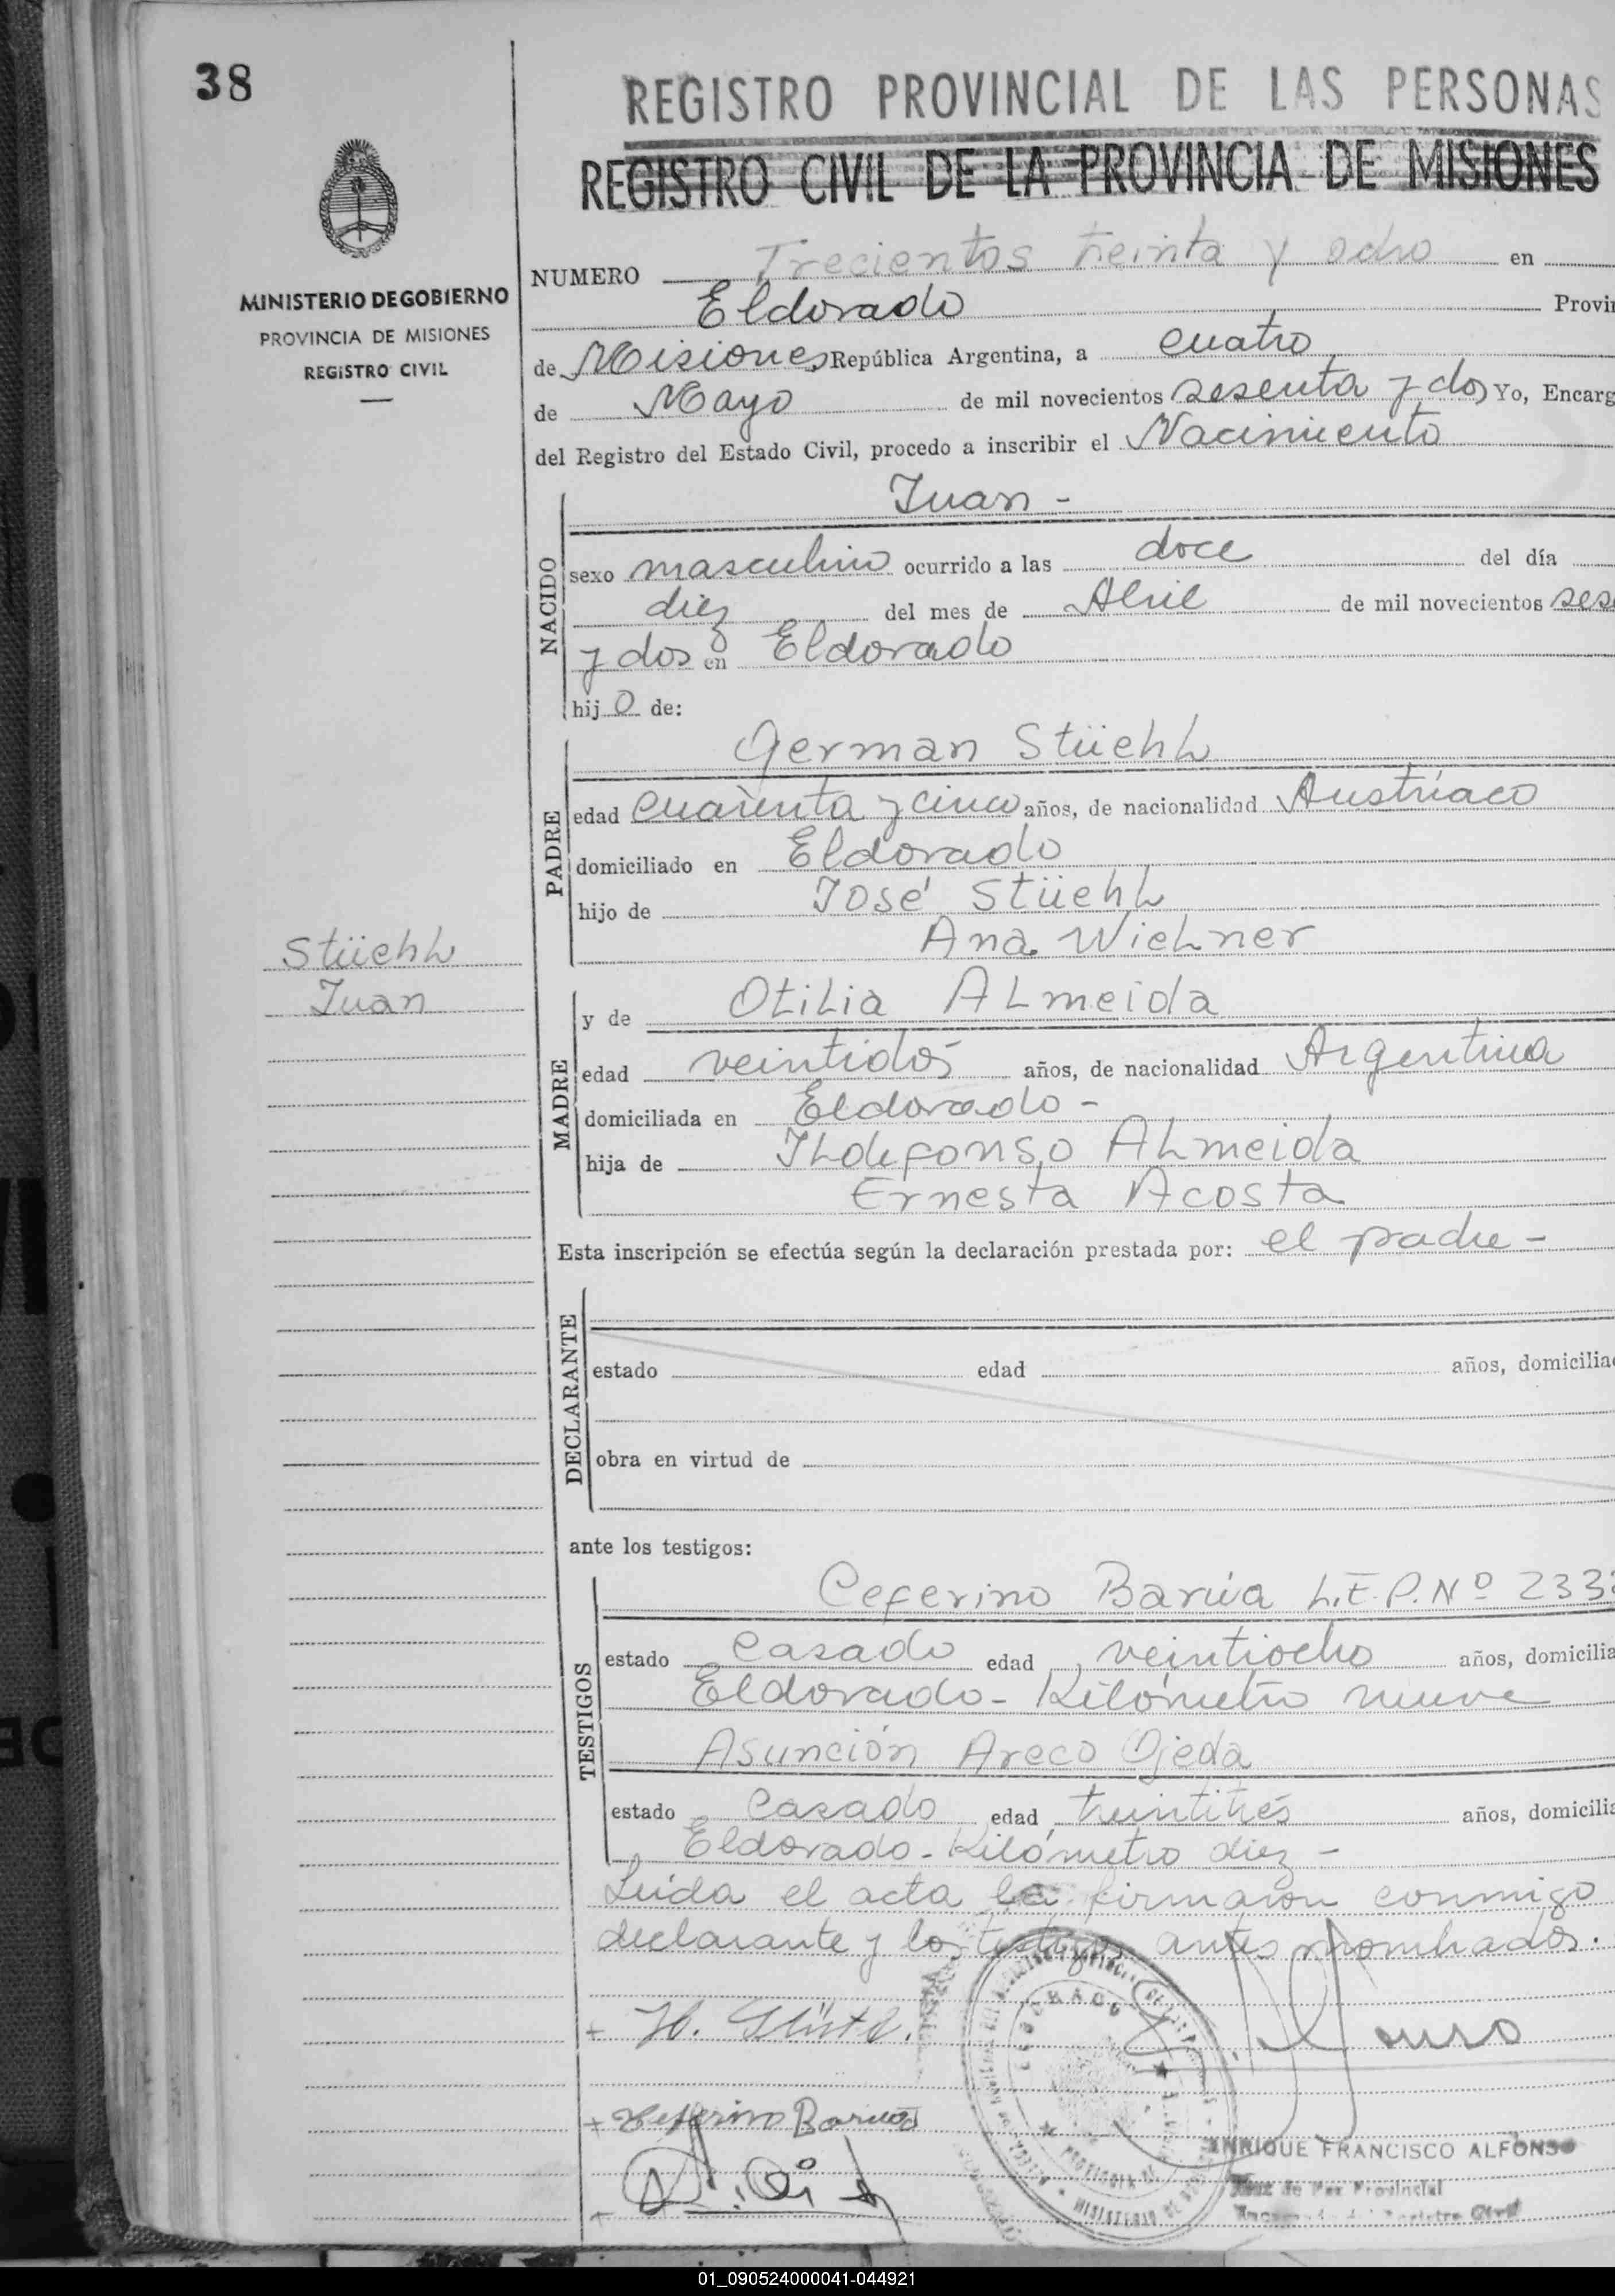 38
REGISTRO PROVINCIAL DE LAS PERSONAS
REGISTRO CIVIL DE LA PROVINCIA DE MISIONES
MINISTERIO DE GOBIERNO
PROVINCIA DE MISIONES
REGISTRO CIVIL
NUMERO Trecientos treinta y ocho en
Eldorado Provin
de Misiones, República Argentina, a cuatro
de Mayo de mil novecientos sesenta y dos Yo, Encarg
del Registro del Estado Civil, procedo a inscribir el Nacimiento
NACIDO
Juan -
sexo masculino ocurrido a las doce del día
diez del mes de Abril de mil novecientos sese
y dos en Eldorado
hijo de:
PADRE
German Stüehl
edad cuarenta y cinco años, de nacionalidad Austríaco
domiciliado en Eldorado
hijo de José Stüehl
Ana Wielner
Stüehl
Juan
MADRE
y de Otilia Almeida
edad veintidós años, de nacionalidad Argentina
domiciliada en Eldorado -
hija de Ildefonso Almeida
Ernesta Acosta
Esta inscripción se efectúa según la declaración prestada por: el padre -
DECLARANTE
estado edad años, domicilia
obra en virtud de
ante los testigos:
TESTIGOS
Ceferino Barúa L.E.P. Nº 233
estado Casado edad veintiocho años, domicilia
Eldorado - Kilómetro nueve
Asunción Areco Ojeda
estado Casado edad treintitrés años, domicilia
Eldorado - Kilómetro diez -
Leída el acta la firmaron conmigo
declarante y los testigos antes nombrados.
+ H.
+ Ceferino Barúa
+
ENRIQUE FRANCISCO ALFONSO
Juez de Paz Provincial
01_090524000041-044921